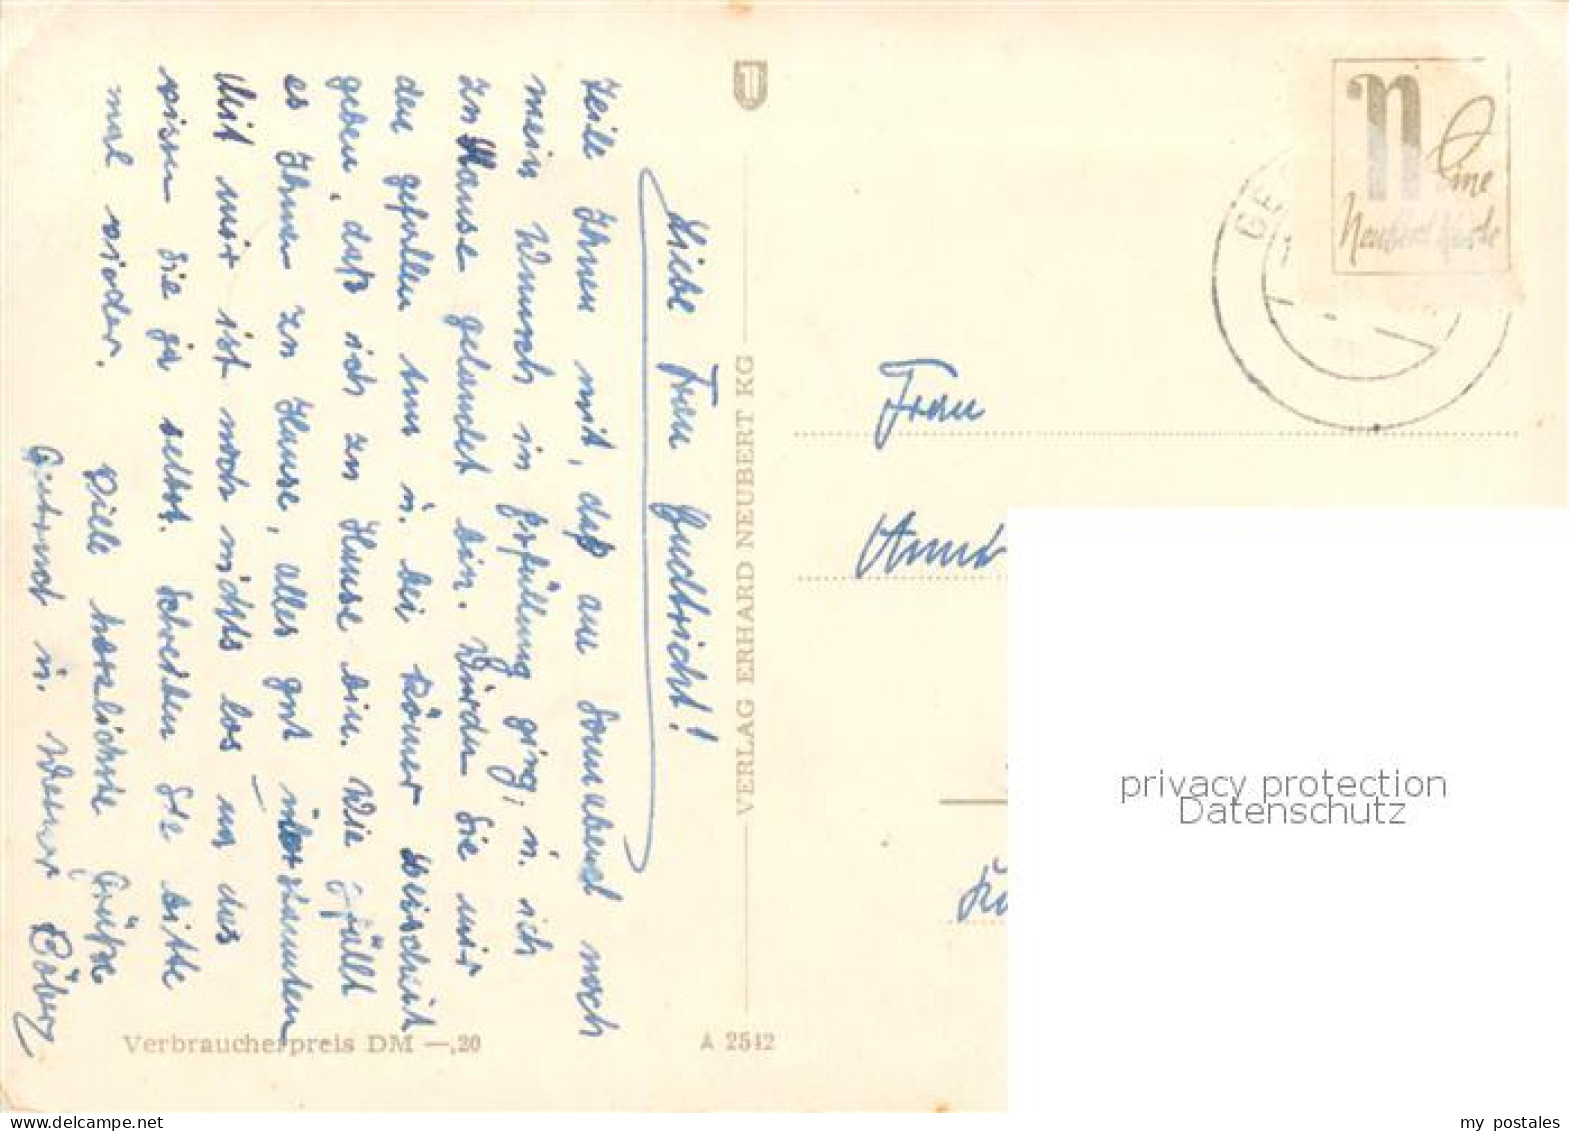 Liebe Frau Gudtricht!
Teile Ihnen mit, daß am Sonnabend noch
mein Wunsch in Erfüllung ging, u. ich
zu Hause gelandet bin. Würden Sie mir
den gefallen tun u. bei Römer bescheit
geben, daß ich zu Hause bin. Wie gefällt
es Ihnen zu Hause, alles gut überstanden
Mit mir ist noch nichts los um das
wissen Sie ja selbst. Schreiben Sie bitte
mal wieder.
Viele herzlichste Grüße
Gertrud u. Werner Döbers
VERLAG ERHARD NEUBERT KG
Verbraucherpreis DM —,20
A 2542
N Eine
Neubert Karte
Frau
Anna
privacy protection
Datenschutz
my postales